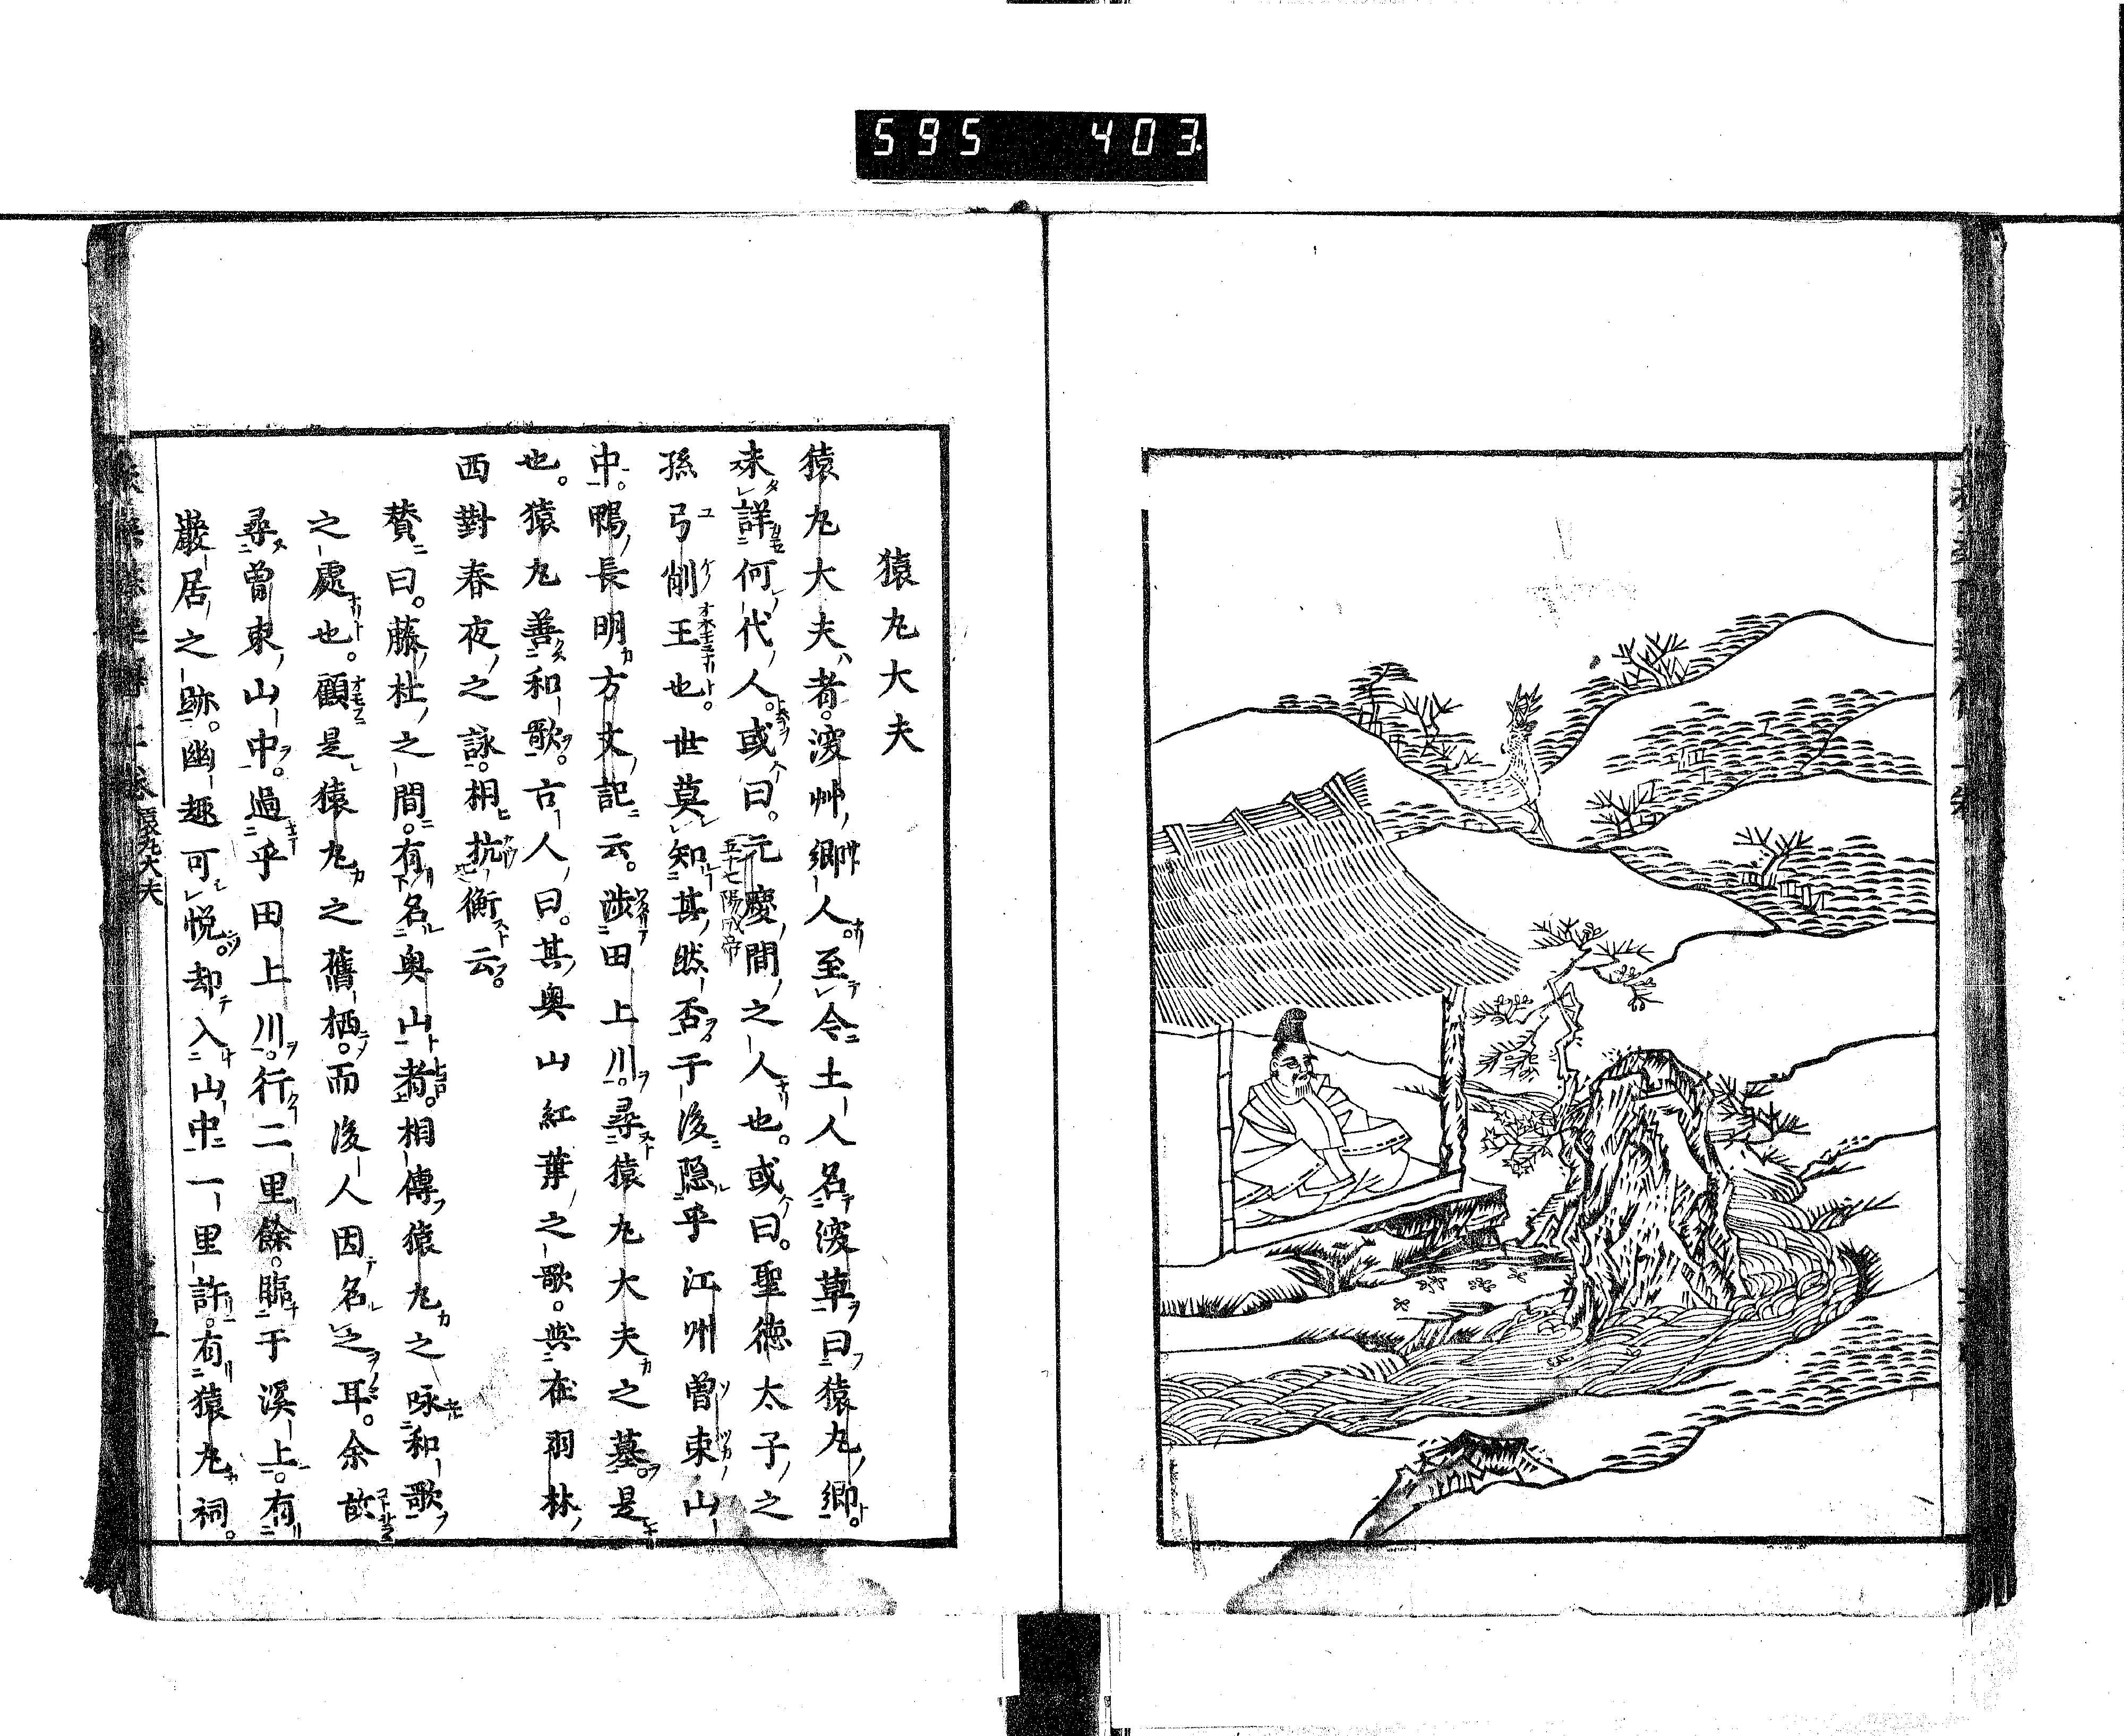 595 403
猿丸大夫
猿丸大夫者。深艸鄉人。至今土人名深草曰猿丸鄉。
未詳何代人。或曰。元慶間之人也。或曰。聖徳太子之
五十七陽成帝
孫弓削王也。世莫知其然否。于後隠乎江州曾束山
中。鴨長明方丈記云。渉田上川。尋猿丸大夫之墓。是
也。猿丸善和歌。古人曰。其奥山紅葉之歌。與在羽林
西對春夜之詠。相抗衡云。
賛曰。藤杜之間。有名奥山者。相傳猿丸之咏和歌
之處也。顧是猿丸之舊栖。而後人因名之耳。余故
尋曾束山中。過乎田上川。行二里餘。臨于溪上。有
巖居之跡。幽趣可悦。却入山中一里許。有猿丸祠。
猿丸大夫